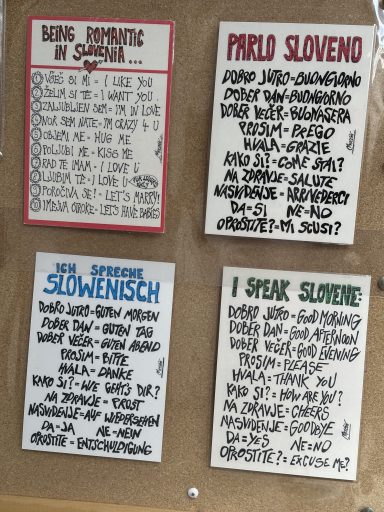 BEING ROMANTIC
IN SLOVENIA...
1 VŠEČ SI MI = I LIKE YOU
2 ŽELIM SI TE = I WANT YOU
3 ZALJUBLJEN SEM = I'M IN LOVE
4 NOR SEM NATE = I'M CRAZY 4 U
5 OBJEMI ME = HUG ME
6 POLJUBI ME = KISS ME
7 RAD TE IMAM = I LOVE U
8 LJUBIM TE = I LOVE U
9 POROČIVA SE! = LET'S MARRY!
10 IMEJVA OTROKE = LET'S HAVE BABIES
PARLO SLOVENO
DOBRO JUTRO = BUONGIORNO
DOBER DAN = BUONGIORNO
DOBER VEČER = BUONASERA
PROSIM = PREGO
HVALA = GRAZIE
KAKO SI? = COME STAI?
NA ZDRAVJE = SALUTE
NASVIDENJE = ARRIVEDERCI
DA = SI NE = NO
OPROSTITE? = MI SCUSI?
ICH SPRECHE
SLOWENISCH
DOBRO JUTRO = GUTEN MORGEN
DOBER DAN = GUTEN TAG
DOBER VEČER = GUTEN ABEND
PROSIM = BITTE
HVALA = DANKE
KAKO SI? = WIE GEHT'S DIR?
NA ZDRAVJE = PROST
NASVIDENJE = AUF WIEDERSEHEN
DA = JA NE = NEIN
OPROSTITE = ENTSCHULDIGUNG
I SPEAK SLOVENE:
DOBRO JUTRO = GOOD MORNING
DOBER DAN = GOOD AFTERNOON
DOBER VEČER = GOOD EVENING
PROSIM = PLEASE
HVALA = THANK YOU
KAKO SI? = HOW ARE YOU?
NA ZDRAVJE = CHEERS
NASVIDENJE = GOODBYE
DA = YES NE = NO
OPROSTITE? = EXCUSE ME?